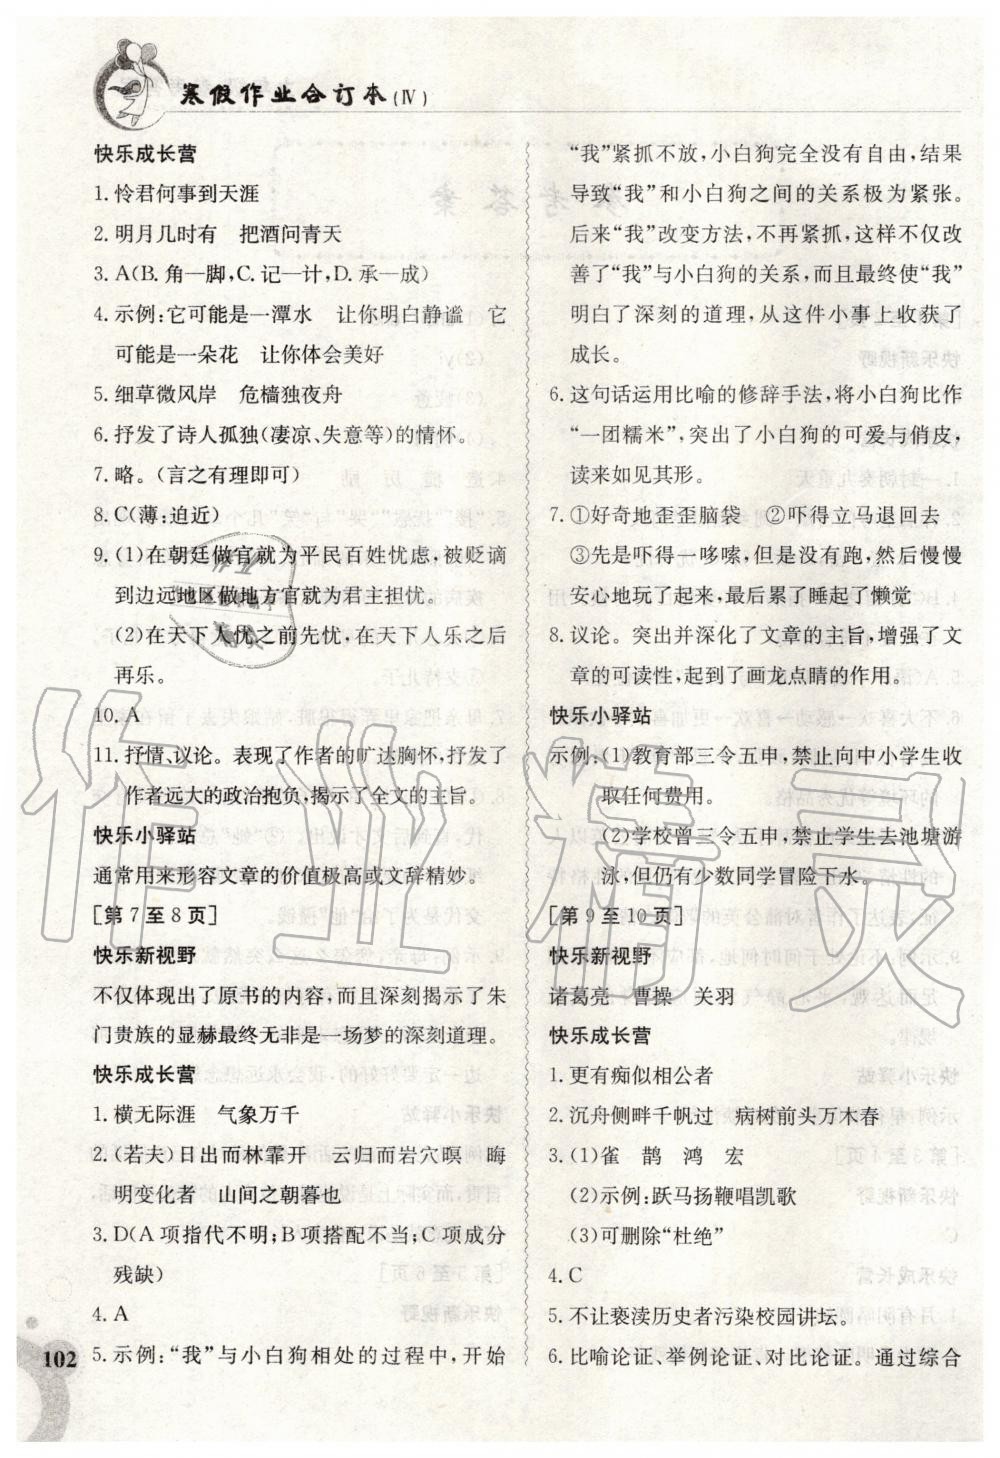 寒假作业合订本(Ⅳ)
快乐成长营
1. 怜君何事到天涯
2. 明月几时有　把酒问青天
3. A(B. 角—脚,C. 记—计,D. 承—成)
4. 示例:它可能是一潭水　让你明白静谧　它
可能是一朵花　让你体会美好
5. 细草微风岸　危樯独夜舟
6. 抒发了诗人孤独(凄凉、失意等)的情怀。
7. 略。(言之有理即可)
8. C(薄:迫近)
9. (1)在朝廷做官就为平民百姓忧虑,被贬谪
到边远地区做地方官就为君主担忧。
(2)在天下人忧之前先忧,在天下人乐之后
再乐。
10. A
11. 抒情、议论。表现了作者的旷达胸怀,抒发了
作者远大的政治抱负,揭示了全文的主旨。
快乐小驿站
通常用来形容文章的价值极高或文辞精妙。
[第 7 至 8 页]
快乐新视野
不仅体现出了原书的内容,而且深刻揭示了朱
门贵族的显赫最终无非是一场梦的深刻道理。
快乐成长营
1. 横无际涯　气象万千
2. (若夫)日出而林霏开　云归而岩穴暝　晦
明变化者　山间之朝暮也
3. D(A 项指代不明;B 项搭配不当;C 项成分
残缺)
4. A
5. 示例:“我”与小白狗相处的过程中,开始
102
“我”紧抓不放,小白狗完全没有自由,结果
导致“我”和小白狗之间的关系极为紧张。
后来“我”改变方法,不再紧抓,这样不仅改
善了“我”与小白狗的关系,而且最终使“我”
明白了深刻的道理,从这件小事上收获了
成长。
6. 这句话运用比喻的修辞手法,将小白狗比作
“一团糯米”,突出了小白狗的可爱与俏皮,
读来如见其形。
7. ①好奇地歪歪脑袋　②吓得立马退回去
③先是吓得一哆嗦,但是没有跑,然后慢慢
安心地玩了起来,最后累了睡起了懒觉
8. 议论。突出并深化了文章的主旨,增强了文
章的可读性,起到了画龙点睛的作用。
快乐小驿站
示例:(1)教育部三令五申,禁止向中小学生收
取任何费用。
(2)学校曾三令五申,禁止学生去池塘游
泳,但仍有少数同学冒险下水。
[第 9 至 10 页]
快乐新视野
诸葛亮　曹操　关羽
快乐成长营
1. 更有痴似相公者
2. 沉舟侧畔千帆过　病树前头万木春
3. (1)雀　鹊　鸿　宏
(2)示例:跃马扬鞭唱凯歌
(3)可删除“杜绝”
4. C
5. 不让亵渎历史者污染校园讲坛。
6. 比喻论证、举例论证、对比论证。通过综合
作业精灵